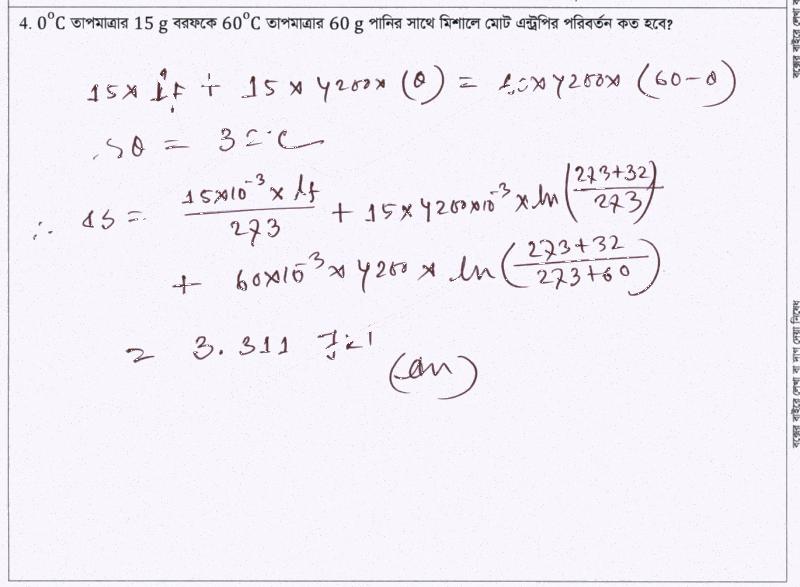 4. 0°C তাপমাত্রার 15 g বরফকে 60°C তাপমাত্রার 60 g পানির সাথে মিশালে মোট এন্ট্রপির পরিবর্তন কত হবে?
15 × lf + 15 × 4200 × (θ) = × 4200 × (60-θ)
θ =
∴ ΔS = \frac{15×10^{-3} × lf}{273} + 15 × 4200 ×10^{-3} × ln(\frac{273+32}{273})
+ 60×10^{-3} × 4200 × ln(\frac{273+32}{273+60})
= 3.311
(Ans)
বক্সের বাইরে লেখা বা দাগ দেয়া নিষেধ
বক্সের বাইরে লেখা ব